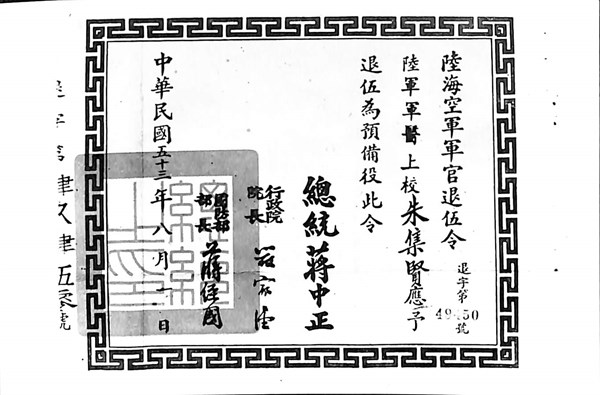 陸海空軍軍官退伍令
退字第
號
陸軍軍醫上校朱集賢應予
退伍為預備役此令
總統蔣中正
行政院
院長 嚴家淦
國防部
部長 蔣經國
中華民國五十三年八月 日